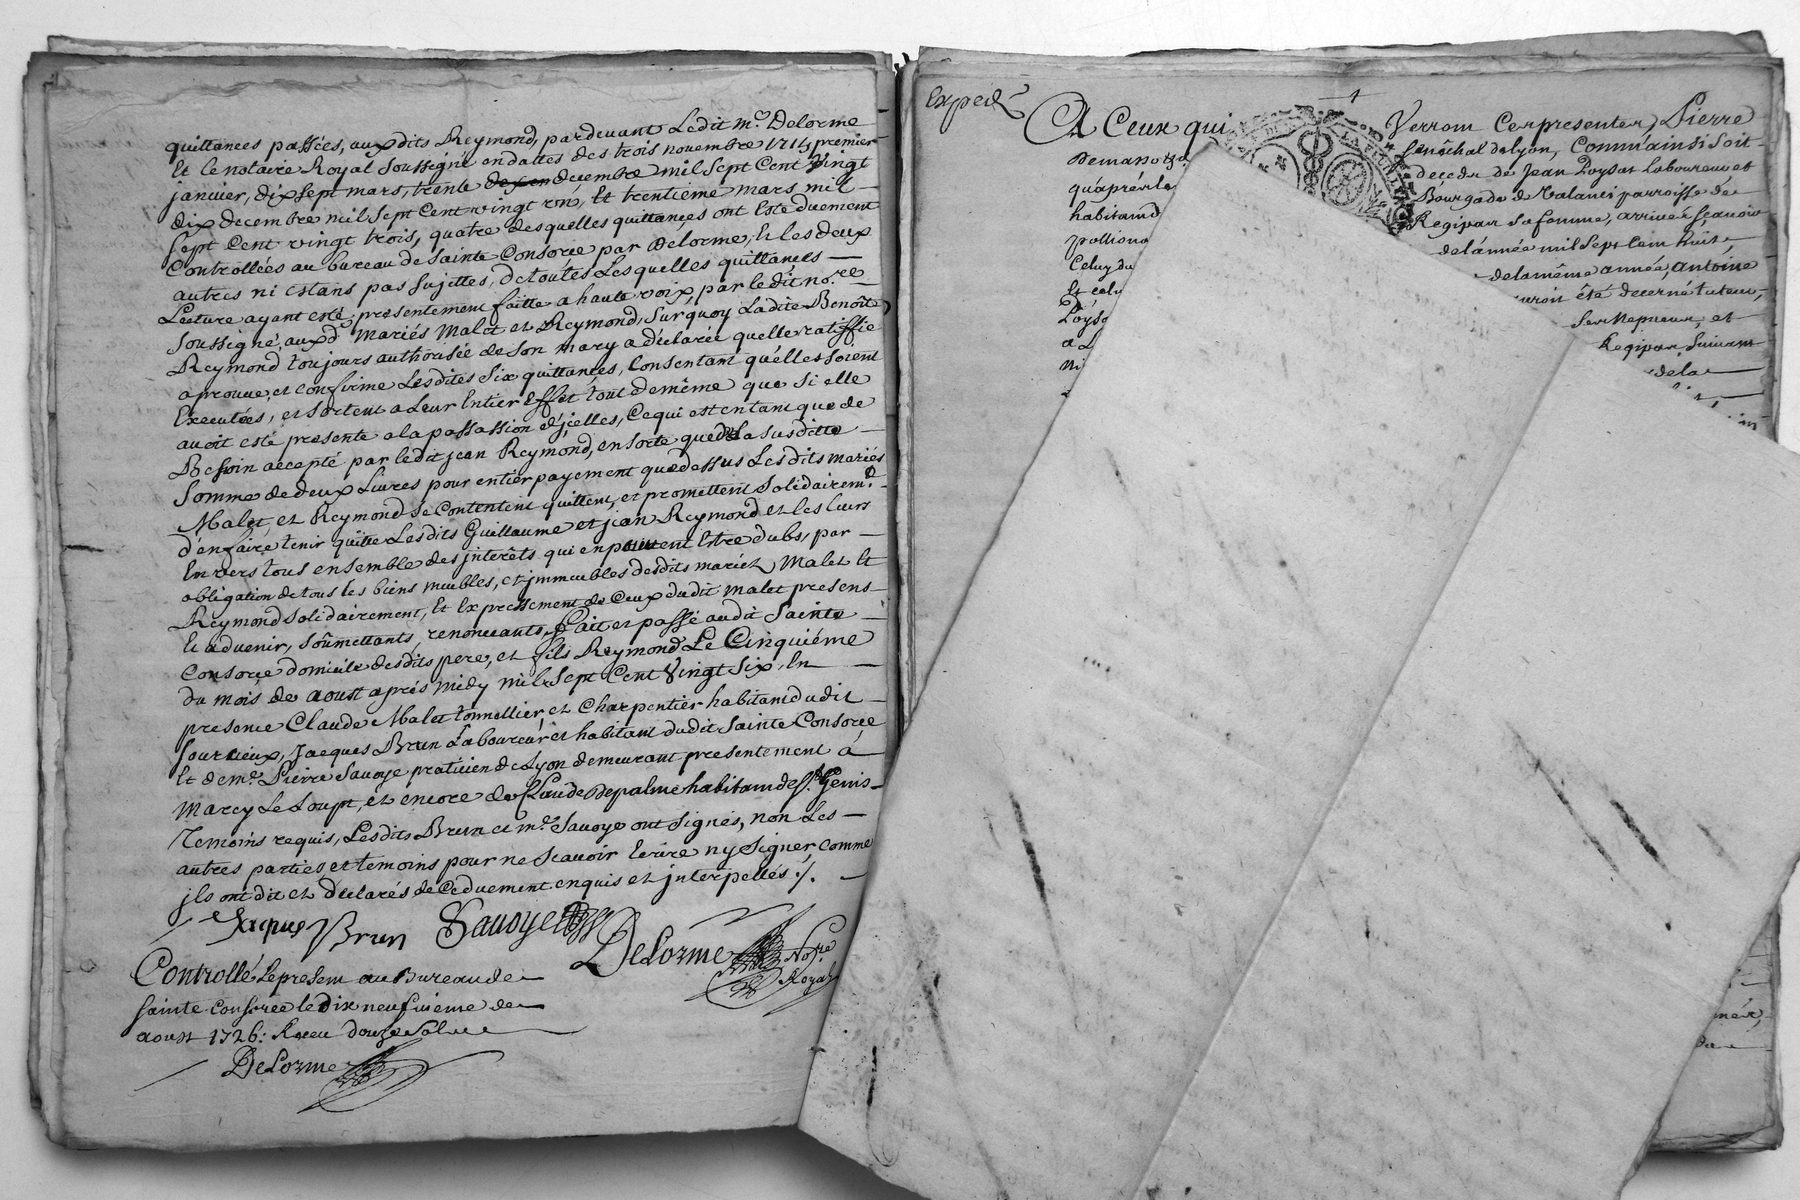 quittances passées, auxdits Reymond, pardevant Ledit m.e Delorme
Et le notaire Royal soussigné en dattes des trois novembre 1714, premier
janvier, dix sept mars, trente decembre mil sept Cent vingt
dix decembre mil sept Cent vingt un, Et trentième mars mil
sept Cent vingt trois, quatre desquelles quittances ont esté duement
Controllées au bureau de sainte Consorce par Delorme, Et les deux
autres ni estans pas sujettes, de toutes Lesquelles quittances
Lecture ayant esté presentement faitte a haute voix, par ledit no.re
soussigné, auxd. mariés Malet et Reymond, sur quoy Ladite Benoîte
Reymond toujours authorisée de son mary a déclarée quelle ratiffie
aprouve, et confirme Lesdites six quittances, Consentant qu'elles soient
Executées, et sortent a Leur Entier Effet tout de même que si elle
avoit esté presente a la passassion d'jcelles, Ce qui est entant que de
Besoin accepté par ledit jean Reymond, en sorte que de La susditte
somme de deux Livres pour entier payement que dessus Lesdits mariés
Malet et Reymond se Contentent quittent, et promettent solidairem.t
d'en faire tenir quitte Lesdits Guillaume et jean Reymond et les Leurs
Envers tous ensemble des interêts qui en peuvent Estre dubs, par
obligation de tous les biens meubles, et jmmeubles desdits mariez Malet Et
Reymond solidairement, Et Expressement de Ceux dudit malet presens
Et advenir, soûmettants, renonceants, fait et passé audit sainte
Consorce domicile desdits pere, et fils Reymond Le Cinquiéme
du mois de aoust aprés midy mil sept Cent vingt six, En
presence Claude Malet tonnellier, et Charpentier habitant dudit
sourcieux, Jacques Brun Laboureur et habitant dudit sainte Consorce
Et de m.e Pierre Savoye praticien de Lyon demeurant presentement à
Marcy Le Loupt, et encore de Claude Depalme habitant de s.t Genis
Temoins requis, Lesdits Brun et m.e Savoye ont signés, non Les
autres parties et temoins pour ne sçavoir Ecrire ny signer, comme
jls ont dit et declarés de Ce duement enquis et jnterpellés ./.
Jaques Brun Savoye
DeLorme No.re Royal
Controllé Le present au Bureau de
sainte Consorce le dix neufvieme de
aoust 1726: Receu douze sols
DeLorme
Exped.
A Ceux qui Verront Ces presentes, Pierre
senêchal de Lyon, Comm'ainsi soit
qu'aprés le decedx de Jean Poysat Laboureur et
habitant Bourgade de parroisse de
sa femme, arrivés sçavoir
Celuy du de l'année mil sept Cent huit,
Et celuy de la même année, Antoine
auroit été decerné tuteur,
ses Nepveux, et
suivant
de la